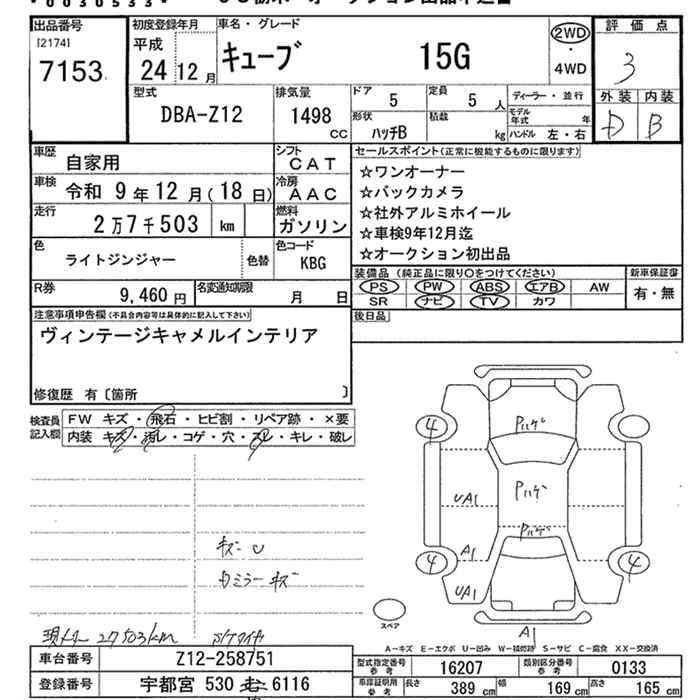 * 0 0 3 0 5 3 3 *
出品番号
[2174]
7153
初度登録年月
平成
24 12 月
車名・グレード
キューブ 15G
2WD
・
4WD
評価点
3
外装 内装
D B
型式
DBA-Z12
排気量
1498
CC
ドア 5
定員 5 人
形状 ハッチB
積載 kg
ディーラー・並行
モデル年式 年
ハンドル 左・右
車歴 自家用
シフト CAT
車検 令和 9 年 12 月(18 日)
冷房 AAC
走行 2万7千503 km
燃料 ガソリン
色 ライトジンジャー
色替
色コード KBG
R券 9,460 円
名変通知期限 月 日
セールスポイント(正常に機能するものに限ります)
☆ワンオーナー
☆バックカメラ
☆社外アルミホイール
☆車検9年12月迄
☆オークション初出品
装備品(純正品に限り○をつけてください)
PS PW ABS エアB AW
SR ナビ TV カワ
新車保証書
有・無
後日品
注意事項申告欄(不具合内容等は具体的に記入して下さい)
ヴィンテージキャメルインテリア
修復歴 有〔箇所 〕
検査員記入欄
FW キズ・飛石・ヒビ割・リペア跡・×要
内装 キズ・汚レ・コゲ・穴・スレ・キレ・破レ
キズ U
カミラーキズ
現メーター 27503km
Pハゲ
Pハゲ
Pハゲ
4
4
4
UA1
A1
UA1
A1
スペア
A-キズ E-エクボ U-凹み W-補修跡 S-サビ C-腐食 XX-交換済
車台番号 Z12-258751
登録番号 宇都宮 530 6116
型式指定番号 参考 16207
類別区分番号 参考 0133
車庫証明用 参考 長さ 389 cm 幅 169 cm 高さ 165 cm